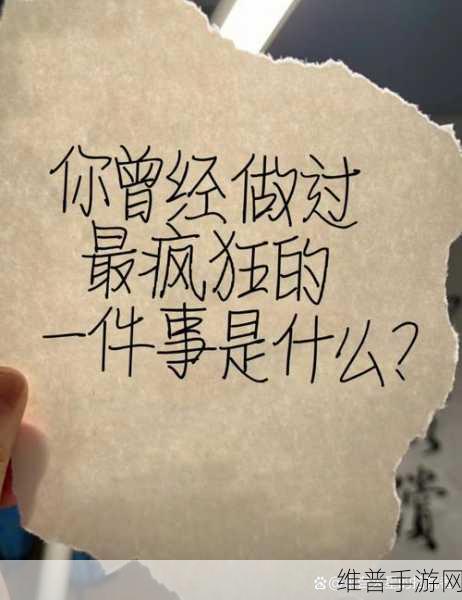 你曾经做过
最疯狂的
一件事是什么?
赏
维普手游网